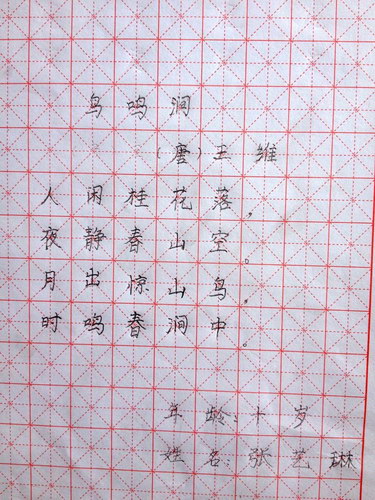 鸟鸣涧
(唐)王维
人闲桂花落,
夜静春山空。
月出惊山鸟,
时鸣春涧中。
年龄:十岁
姓名:张艺琳